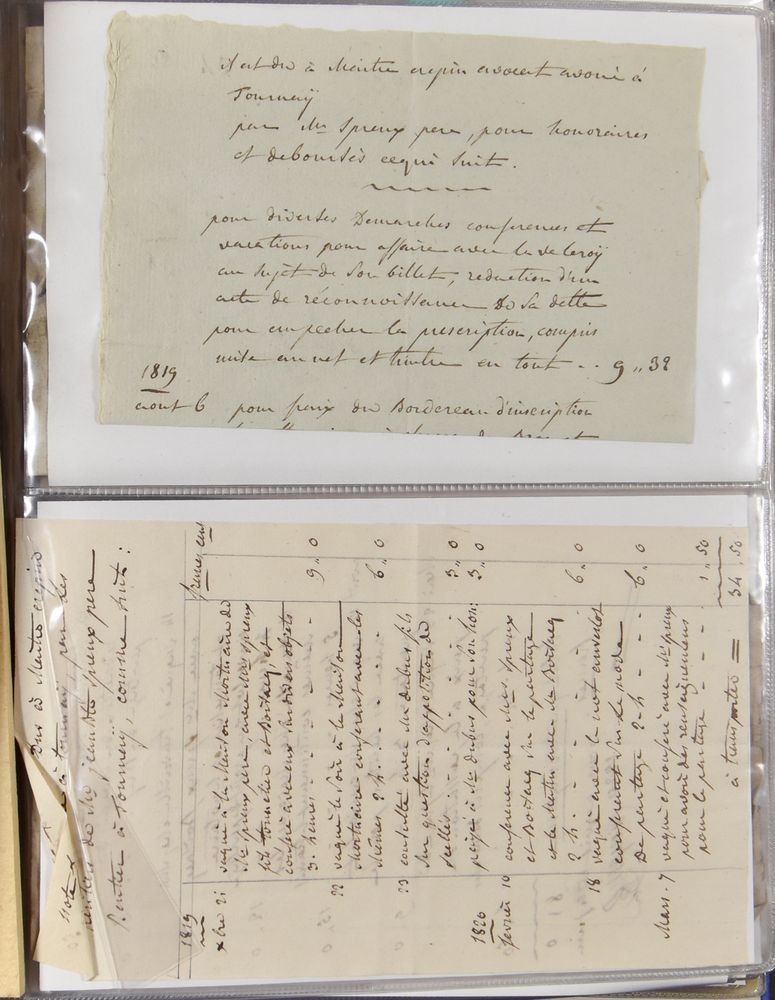 il est du à Maitre crepin avocat avoué à
Tournaÿ
par Mr Spreux pere, pour honoraires
et deboursés cequi Suit.
pour diverses Demarches conferences et
vacations pour affaire avec la ve leroÿ
au Sujet de Son billet, redaction d'un
acte de réconnoissance De Sa dette
pour empecher la prescription, compris
mise au net et timbre en tout .. 9 ,, 32
1819
aout 6 pour fraix du Bordereau d'inscription
dus à Maitre crepin
à tournaÿ, par les
de Mr jean Bte Spreux pere
Rentier à Tournaÿ, comme Suit:
1819 francs cent
xbre 21 vaqué à la Maison Mortuaire de
Mr Spreux pere, avec Mrs Spreux
fils, et
conferé avec eux Sur divers objets
3. heures - - - - - 9 ,, 0
22 vaqué le Soir à la Maison
Mortuaire conferant avec les
Mêmes 2 h. - - - - 6 ,, 0
23 consulté avec Mr dubus fils
Sur question d'apposition de
Scellés - - - - - 3 ,, 0
payé à Mr dubus pour Son hon: 3 ,, 0
1820
fevrier 16 conference avec Mrs Spreux
et Sur le partage
et le Matin avec Mr
2 h. - - - - 6 ,, 0
18 vaqué avec le not
conferent Sur le mode
De partage 2 h - - - 6 ,, 0
Mars. 7 vaqué et conferé avec Mr Spreux
pour avoir des renseignemens
pour le partage - - - - 1 ,, 50
à transporter = 34 ,, 50